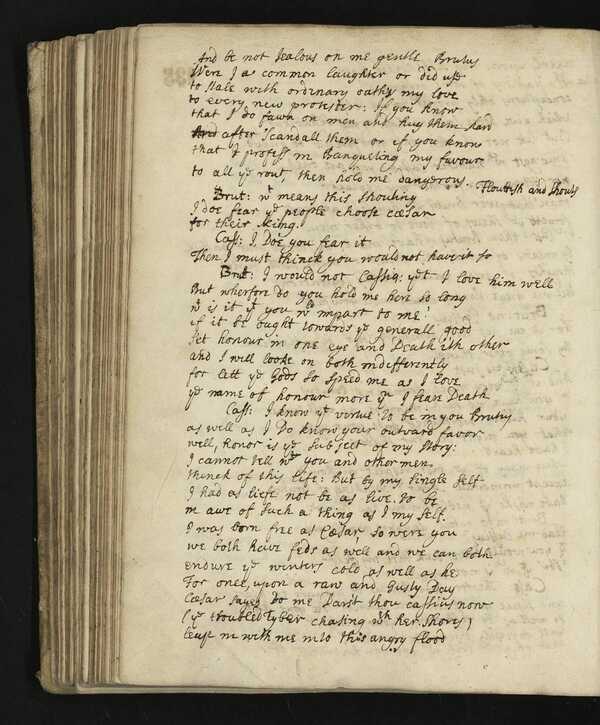 And be not Jealous on me gentle Brutus
Were I a common laughter or did use
to stale with ordinary oaths my love
to every new protester: If you know
that I do fawn on men and hug them hard
And after scandall them or if you know
that I profess in Banqueting my favour
to all ye rout, then hold me dangerous.
Flourish and shouts
Brut: wt means this shouting
I doe fear ye people choose Cæsar
for their King.
Cass: I, Doe you fear it
Then I must thinck you would not have it so
Brut: I would not Cassiq: yet I love him well
But wherfore do you hold me here so long
wt is it yt you wd impart to me?
if it be ought towards ye generall good
set honour in one eye and Death ith other
and I will looke on both indifferently
for lett ye Gods so speed me as I love
ye name of honour more yn I fear Death
Cass: I know yt virtue to be in you Brutus
as well as I do know your outward favor
well, honor is ye subject of my story:
I cannot tell wt you and other men
thinck of this life: But by my single self
I had as liefe not be as live to be
in awe of such a thing as I my self.
I was born free as Cæsar, so were you
we both have feds as well and we can both
endure ye winters cold as well as he
For once, upon a raw and Gusty Day
Cæsar sayes to me Darst thou Cassius now
(ye troubled Tyber chasing wth her shores)
leap in with me into this angry flood